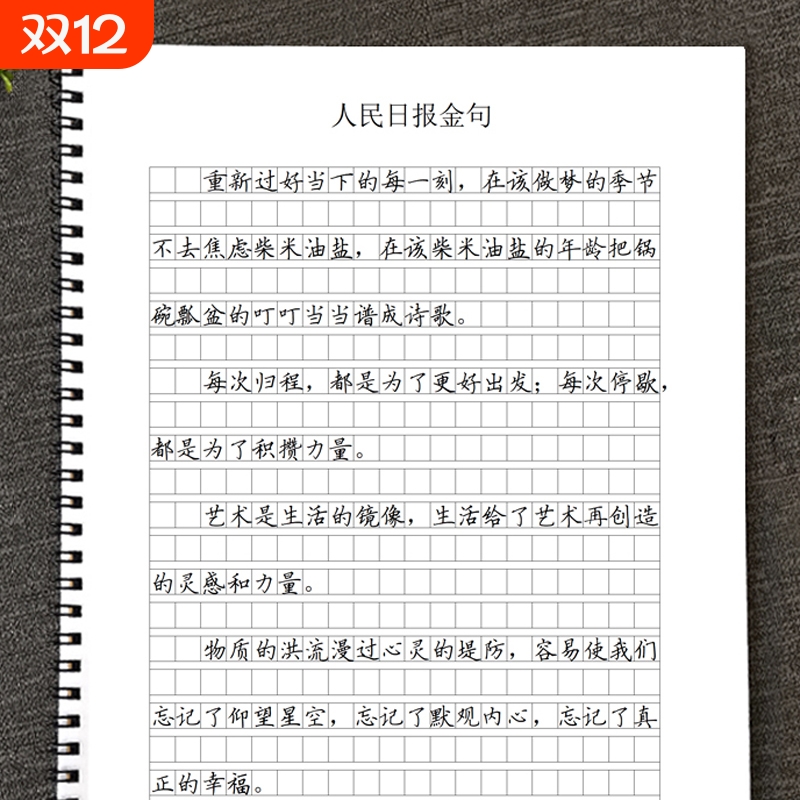 双12
人民日报金句
重新过好当下的每一刻，在该做梦的季节
不去焦虑柴米油盐，在该柴米油盐的年龄把锅
碗瓢盆的叮叮当当谱成诗歌。
每次归程，都是为了更好出发；每次停歇，
都是为了积攒力量。
艺术是生活的镜像，生活给了艺术再创造
的灵感和力量。
物质的洪流漫过心灵的堤防，容易使我们
忘记了仰望星空，忘记了默观内心，忘记了真
正的幸福。